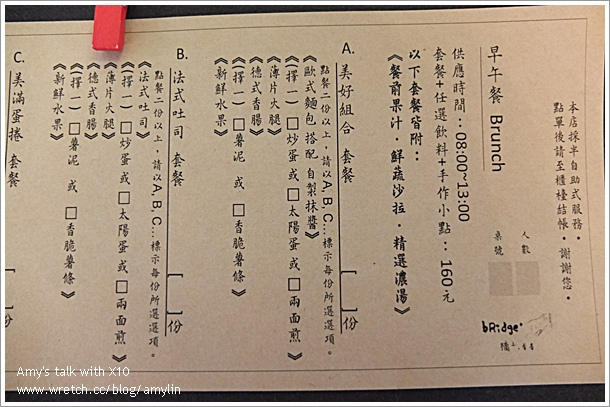 本店採半自助式服務。
點單後請至櫃檯結帳。謝謝您。
人數
桌號
bRidge
早午餐 Brunch
供應時間：08:00~13:00
套餐+任選飲料+手作小點：160元
以下套餐皆附：
《餐前果汁．鮮蔬沙拉．精選濃湯》
A. 美好組合 套餐 [ ]份
點餐二份以上，請以A,B,C...標示每份所選選項。
《歐式麵包搭配自製抹醬》
(擇一) □炒蛋或□太陽蛋或□兩面煎》
《薄片火腿》
《德式香腸》
《(擇一) □薯泥 或 □香脆薯條》
《新鮮水果》
B. 法式吐司 套餐 [ ]份
點餐二份以上，請以A,B,C...標示每份所選選項。
《法式吐司》
《(擇一) □炒蛋或□太陽蛋或□兩面煎》
《薄片火腿》
《德式香腸》
《(擇一) □薯泥 或 □香脆薯條》
《新鮮水果》
C. 美滿蛋捲 套餐 [ ]份
Amy's talk with X10
www.wretch.cc/blog/amylin